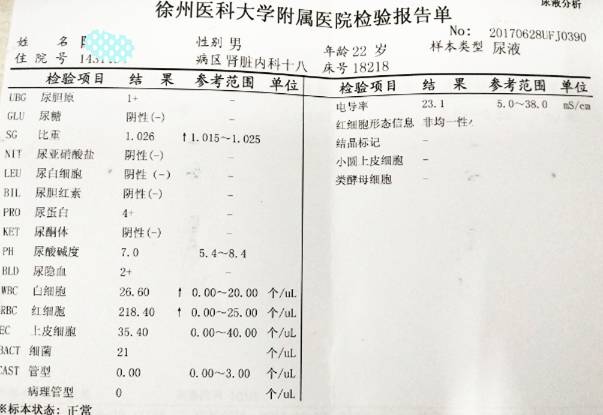 尿液分析
徐州医科大学附属医院检验报告单
No: 20170628UFJ0390
姓 名 性别 男 年龄 22 岁 样本类型 尿液
住 院 号 病区 肾脏内科十八 床号 18218
检验项目 结 果 参考范围 单位 检验项目 结 果 参考范围 单位
UBG 尿胆原 1+ - 电导率 23.1 5.0~38.0 mS/cm
GLU 尿糖 阴性(-) - 红细胞形态信息 非均一性
SG 比重 1.026 ↑ 1.015~1.025 结晶标记 -
NIT 尿亚硝酸盐 阴性(-) - 小圆上皮细胞 -
LEU 尿白细胞 阴性(-) - 类酵母细胞 -
BIL 尿胆红素 阴性(-) -
PRO 尿蛋白 4+ -
KET 尿酮体 阴性(-) -
PH 尿酸碱度 7.0 5.4~8.4
BLD 尿隐血 2+ -
WBC 白细胞 26.60 ↑ 0.00~20.00 个/uL
RBC 红细胞 218.40 ↑ 0.00~25.00 个/uL
EC 上皮细胞 35.40 0.00~40.00 个/uL
BACT 细菌 21 个/uL
CAST 管型 0.00 0.00~3.00 个/uL
病理管型 0 个/uL
※标本状态: 正常